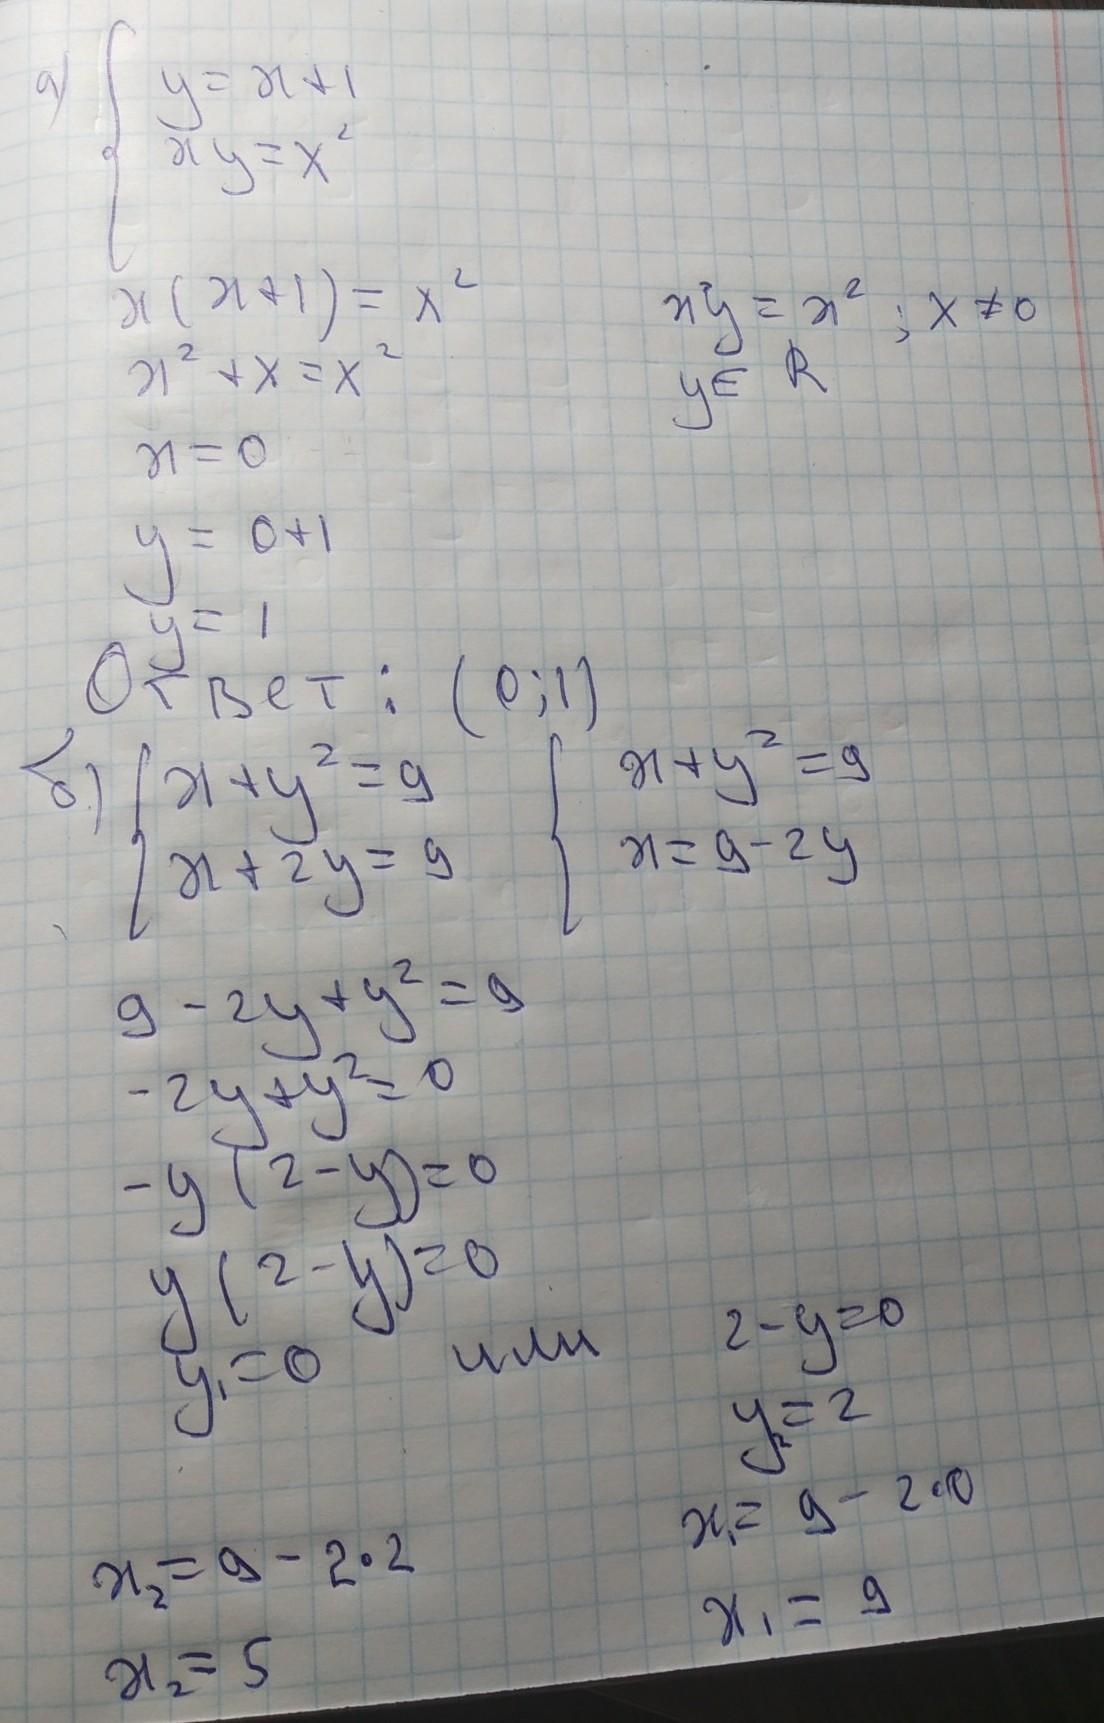 а) { y = x+1
xy = x²
x(x+1) = x²
x² + x = x²
xy = x² ; x ≠ 0
y ∈ R
x = 0
y = 0+1
y = 1
Ответ: (0;1)
б) { x+y² = 9
x+2y = 9
{ x+y² = 9
x = 9-2y
9 - 2y + y² = 9
-2y + y² = 0
-y(2-y) = 0
y(2-y) = 0
y₁ = 0 или 2-y = 0
y₂ = 2
x₁ = 9 - 2·0
x₁ = 9
x₂ = 9 - 2·2
x₂ = 5